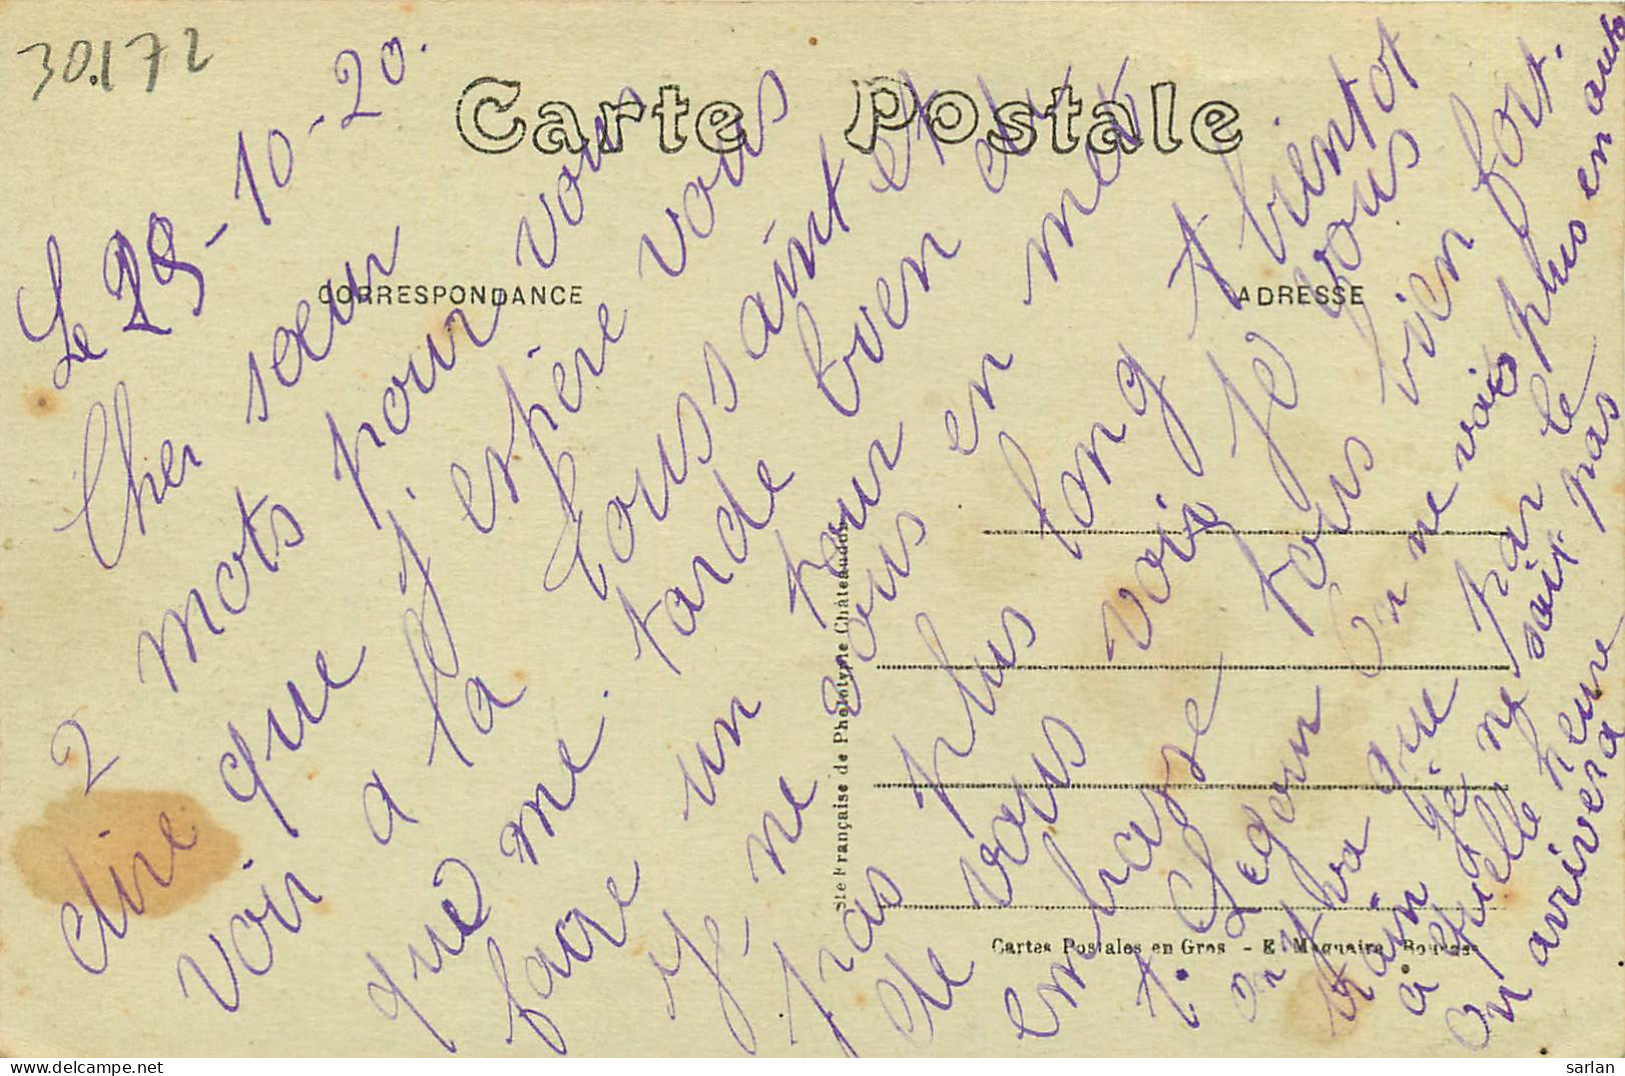 30.172
Carte Postale
CORRESPONDANCE
ADRESSE
Le 29-10-20.
Cher sœur
2 mots pour vous
dire que j espère vous
voir a la toussaint et
que me. tarde bien du
faire un tour en
je ne vous en met
pas plus long t bientot
de vous voir je vous
embrasse tous bien fort.
t. Legoin On ne vois plus en auto
on y va que par le
train je ne sait pas
a quelle heure
on arrivera
Ste Française de Phototypie Châteaudon
Cartes Postales en Gros - E. Maquaire, Bourges
sarlan